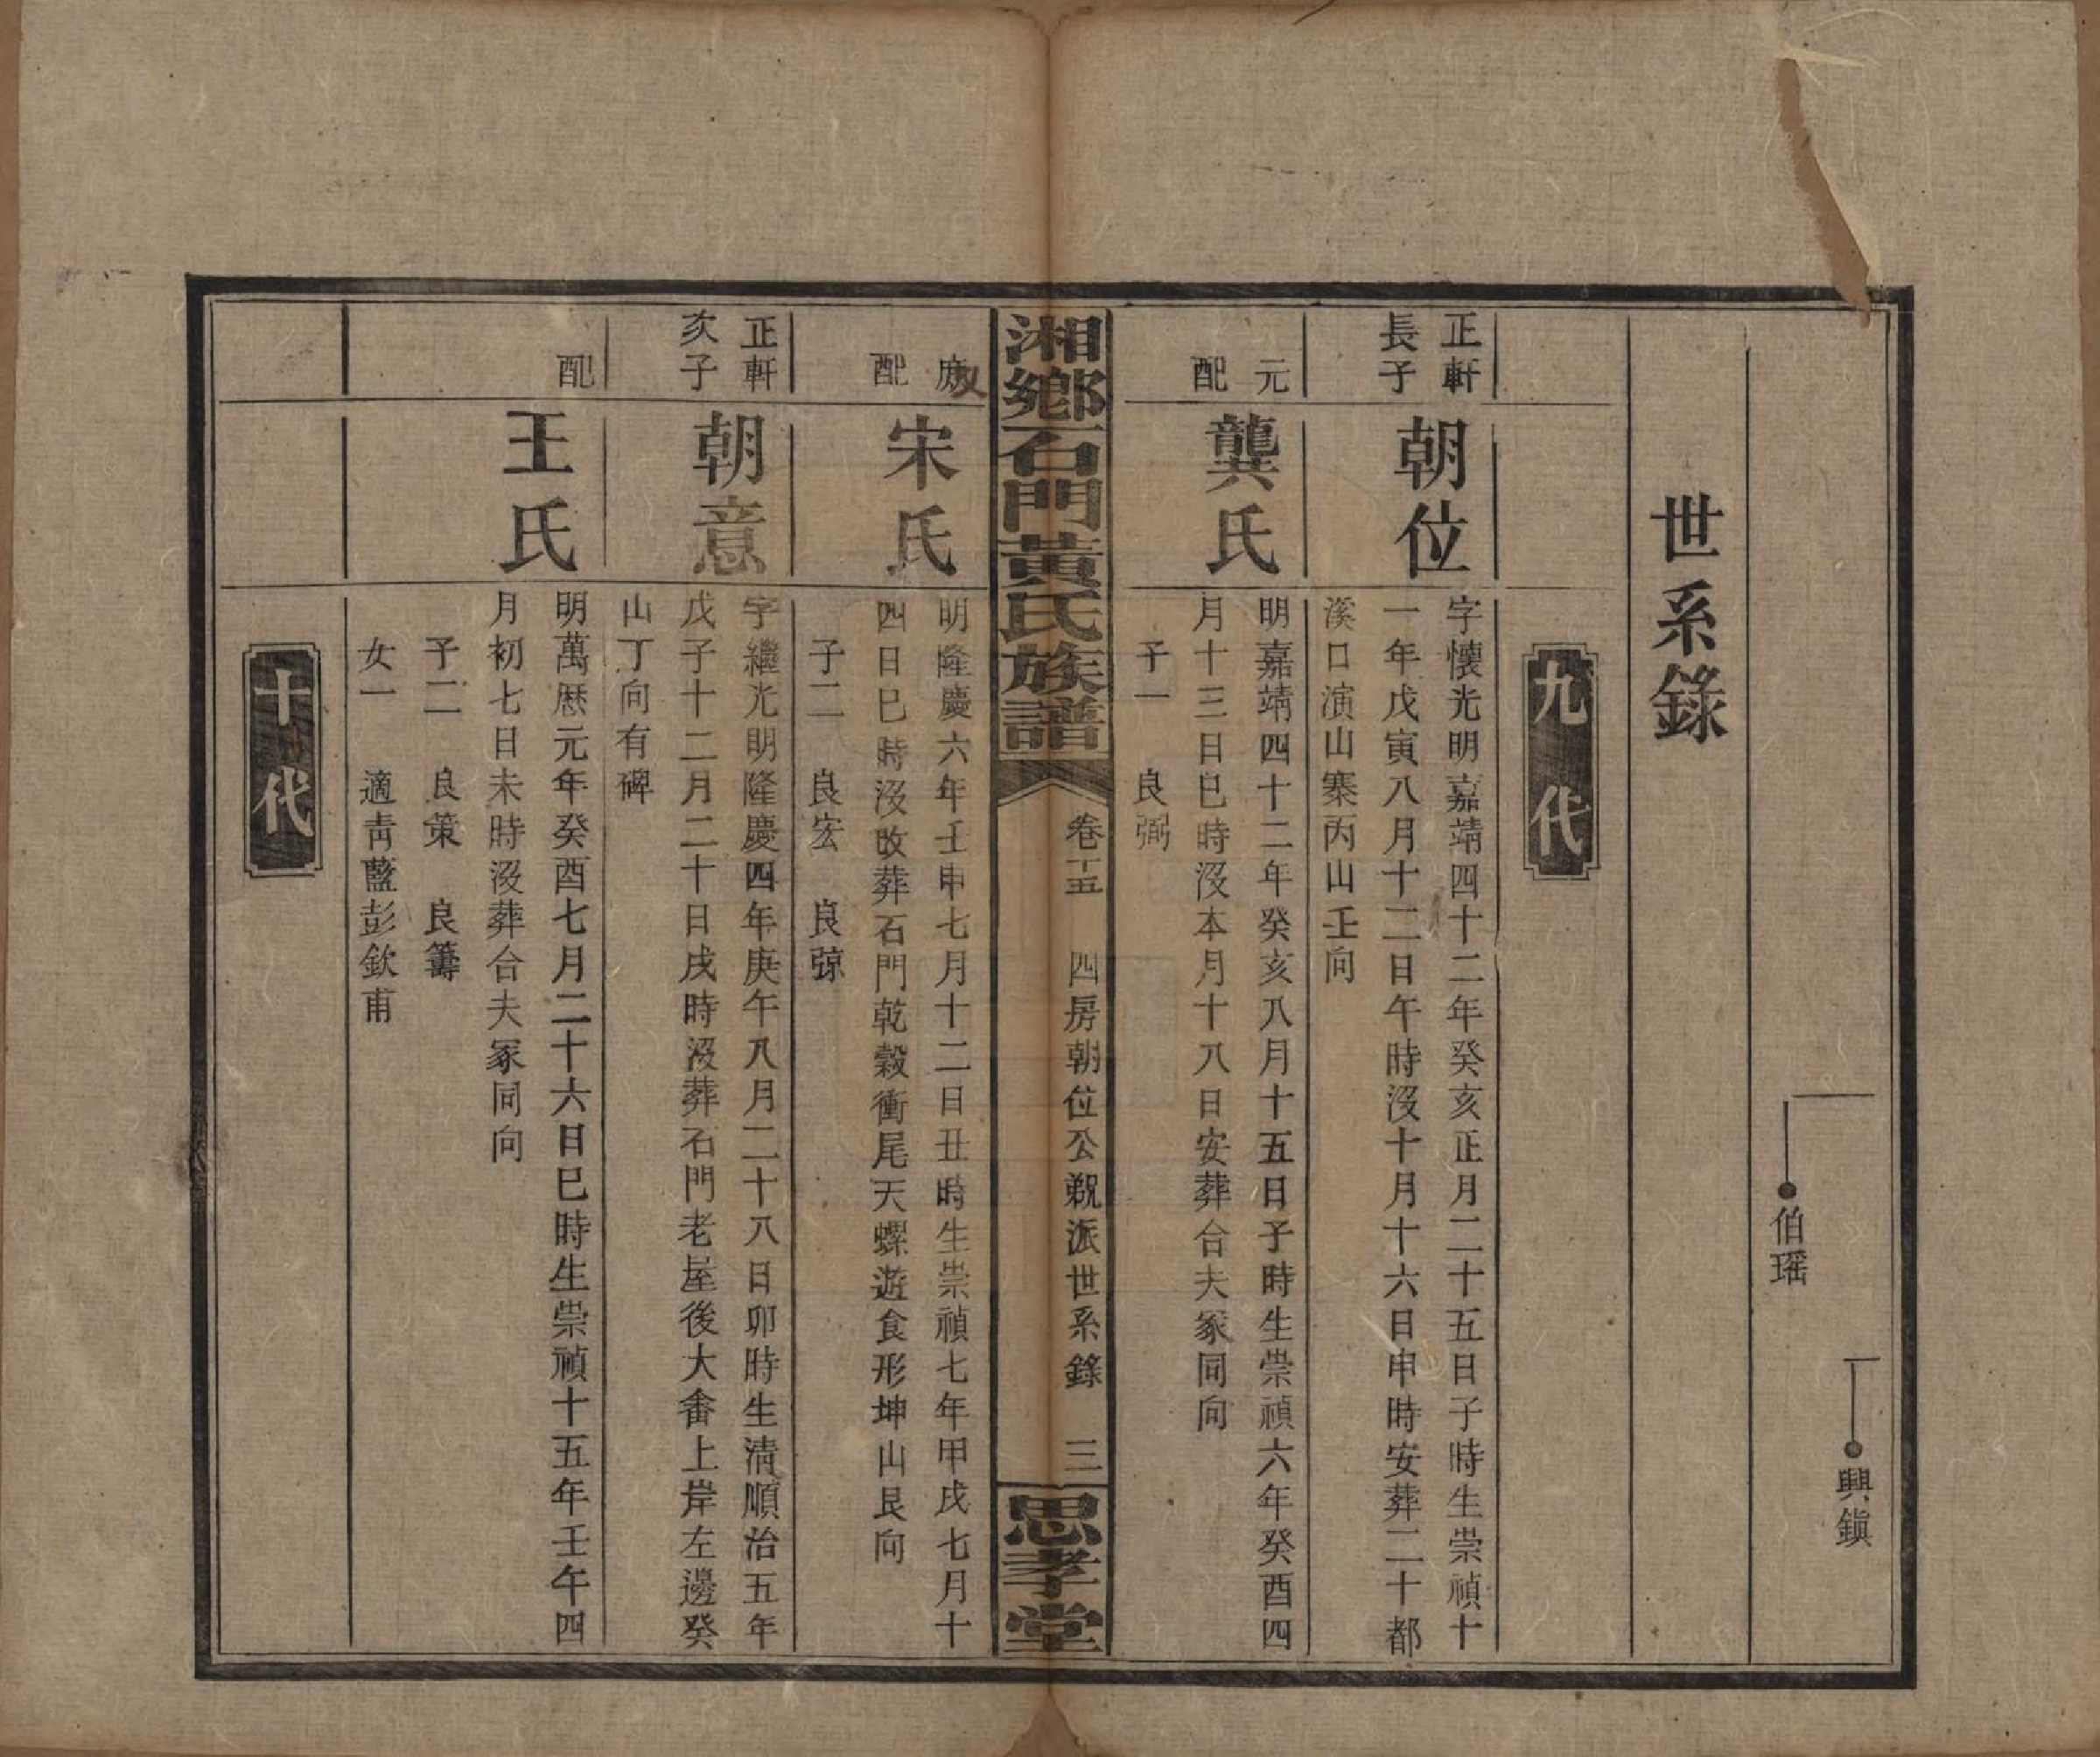 興鎭
伯瑶
世系錄
九代
正軒
長子
朝位
字懷光明嘉靖四十二年癸亥正月二十五日子時生崇禎十
一年戊寅八月十二日午時沒十月十六日申時安葬二十都
溪口演山寨丙山壬向
元
配
龔氏
明嘉靖四十二年癸亥八月十五日子時生崇禎六年癸酉四
月十三日巳時沒本月十八日安葬合夫冢同向
子一 良弼
湘鄉石門黃氏族譜
卷十五 四房朝位公觀派世系錄 三
思孝堂
庶
配
宋氏
明隆慶六年壬申七月十二日丑時生崇禎七年甲戌七月十
四日巳時沒改葬石門乾穀衝尾天螺遊食形坤山艮向
子二 良宏 良弶
正軒
次子
朝意
字繼光明隆慶四年庚午八月二十八日卯時生淸順治五年
戊子十二月二十日戌時沒葬石門老屋後大畲上岸左邊癸
山丁向有碑
配
王氏
明萬厯元年癸酉七月二十六日巳時生崇禎十五年壬午四
月初七日未時沒葬合夫冢同向
子二 良策 良籌
女一 適靑藍彭欽甫
十代